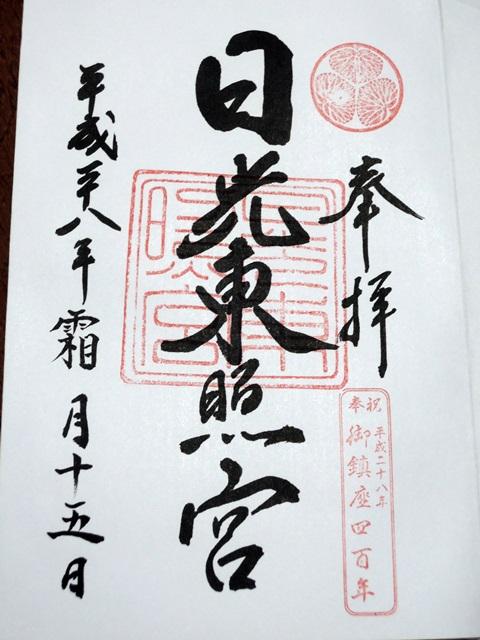 奉拝
奉祝
平成二十八年
御鎮座四百年
日光東照宮
平成二十八年霜月十五日